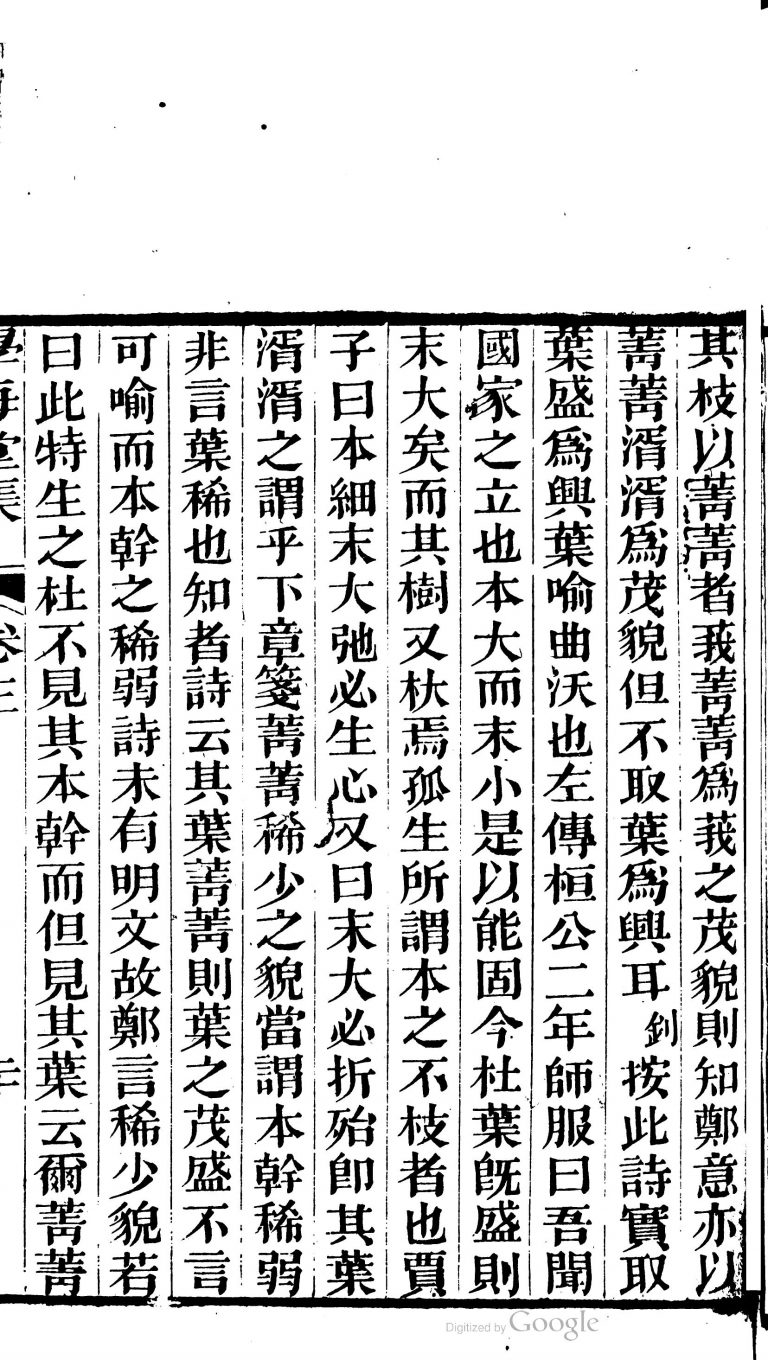 其枝以菁菁者莪菁菁爲莪之茂貌則知鄭意亦以
菁菁湑湑爲茂貌但不取葉爲興耳釗按此詩實取
葉盛爲興葉喻曲沃也左傳桓公二年師服曰吾聞
國家之立也本大而末小是以能固今杜葉旣盛則
末大矣而其樹又杕焉孤生所謂本之不枝者也賈
子曰本細末大弛必生心又曰末大必折殆卽其葉
湑湑之謂乎下章箋菁菁稀少之貌當謂本幹稀弱
非言葉稀也知者詩云其葉菁菁則葉之茂盛不言
可喻而本幹之稀弱詩未有明文故鄭言稀少貌若
曰此特生之杜不見其本幹而但見其葉云爾菁菁
學海堂集
Digitized by Google